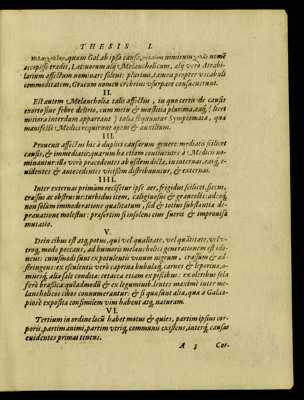 THESIS I.
quam Gal. ab ipsa causa, nimirum nomē
accepisse tradit, Latinorum alij Melancholicum, alij verò Atrabi-
larium affectum nominare solent: plurimū, tamen propter vocabuli
commoditatem, Græcum nomen crebrius vsurpare consueuerunt.
II.
Est autem Melancholia talis affectus, in quo certis de causis
exortis siue febre delirio, cum metu & mœstitia plurima, tanq̃ (licet
mitiora interdum appareant) talia sequuntur Symptomata, qua
manifestè Medici requirant opem & auxilium.
III.
Prouenit affectus hic à duplici causarum genere: mediatis scilicet
causis, & immediatis; quarum hæ etiam continentes à Medicis no-
minantur: illæ verò præcedentes ab ijsdem dicta, in internas, tanq̃, e-
uidentes & antecedentes vicissim distribuuntur, & externas.
IIII.
Inter externas primùm recensetur ipse aer, frigidus scilicet, siccus,
crassus ac obscurus: turbidus item, caliginosus & graueolēs: adeoq́,
non solùm immoderatione qualitatum, sed & totius substantiæ de-
prauatione molestus: præsertim si insolens eius fuerit & improuisa
mutatio.
V.
Dein cibus est atq́ potus, qui vel qualitate, vel quātitate, vel v-
troq́, modo peccans, ad humoris melancholici generationem est ido-
neus: cuiusmodi sunt ex potulentis vinum nigrum, crassum & ad-
stringens: ex esculentis verò caprina bubulaq́, carnes & leporina,
muricq́, alia sale condita: testacea etiam ex piscibus: ex oleribus sola
ferè brassica: quādamodū & ex leguminib. lentes maximè inter me-
lancholicos cibos connumerantur: & si qua sunt alia, qua à Gala-
ptioēs exposita consimilem vim habent atq́, naturam.
VI.
Tertium in ordine locū habet motus & quies, partim ipsius cor-
poris, partim animi, partim verò, communis existens, interq́, causas
euidentes primas tenens.
A 3 Cor-